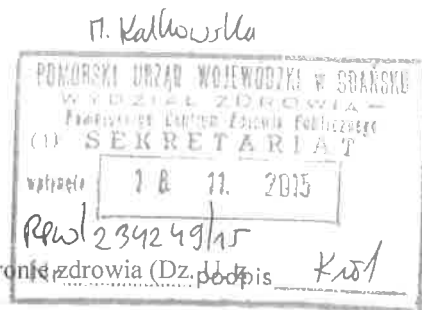 M. Kalkowska
POMORSKI URZĄD WOJEWÓDZKI W GDAŃSKU
WYDZIAŁ ZDROWIA
Pomorskie Centrum Zdrowia Publicznego
(1) SEKRETARIAT
wpłynęło 18. 11. 2015
RPW/234249/15
ronie zdrowia (Dz. U. z
Nr podpis Król